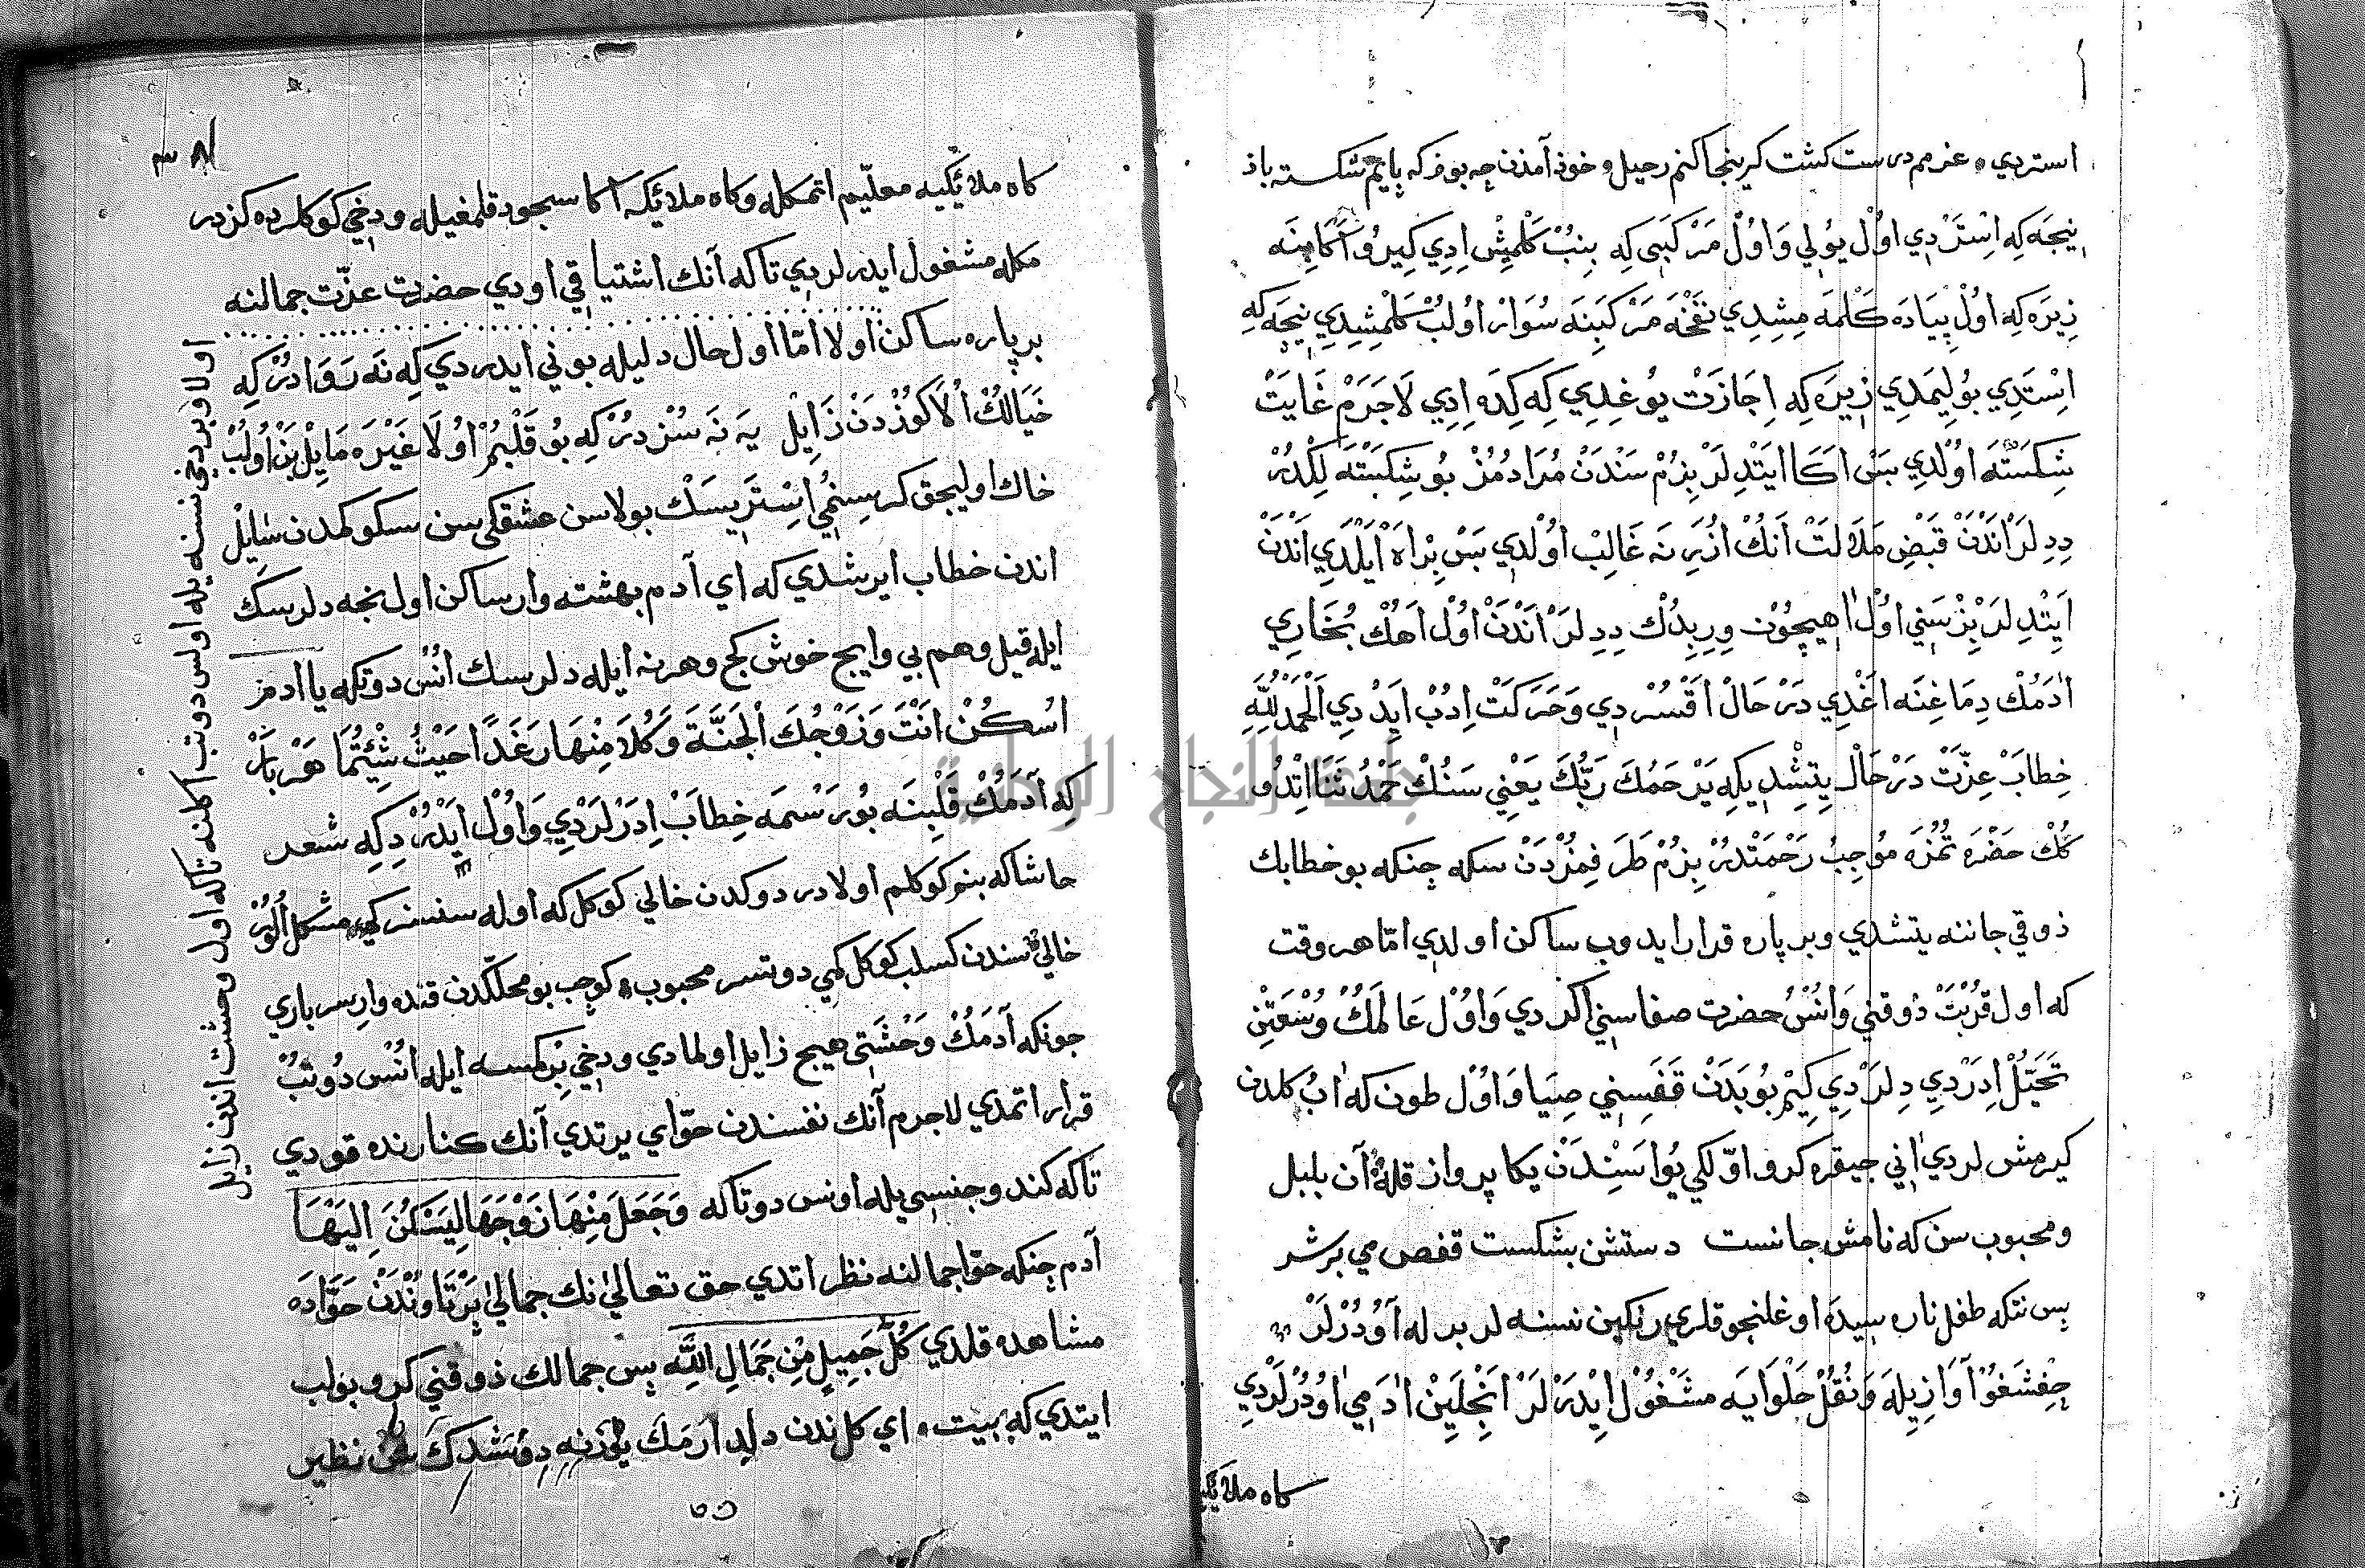 استردي عزمم درست كشت كه اينجا كنم رحيل و خوذ آمدن چه بوذ كه پايم شكسته باذ
نيجه كه اِسْتَرْدِي اوُل يوُلي وَاوُلْ مَرْكَبي كه بِنِبْ كَلْمِشْ اِدِي كيرو
زِيرَه كِه اوُلْ پِيَادَه كَلْمَه مِشِدِي نَفْخَه مَرْكَبِنَه سُوَارْ اوُلُبْ كَلْمِشِدِي نيجَه كِهِ
اِسْتَدِي بُولِيمَدِي زِيرَه كِه اِجَازَتْ يوُغِدِي كِه كِدَه اِدِي لَاجَرَمْ غَايَتْ
شِكَسْتَه اوُلْدِي بَسْ اَكَا اَيِتْدِلَرْ بِزُمْ سَنْدَنْ مُرَادُمُزْ بُو شِكَسْتَه لِكْدُرْ
دِدِلَرْ اَنْدَنْ قَبْضِ مَلَالَتْ اَنُكْ اُزَرِنَه غَالِبْ اوُلْدِي بَسْ بِرْ اَهْ اَيْلَدِي اَنْدَنْ
اَيِتْدِلَرْ بِزْ سَنِي اوُلْ اَهِيچُونْ وِرِبِدُكْ دِدِلَرْ اَنْدَنْ اوُلْ اَهُكْ بُخَارِي
اٰدَمُكْ دِمَاغِنَه اَغْدِي دَرْحَالْ اَقْسُرْدِي وَحَرَكَتْ اِدُبْ اَيِدْدِي اَلْحَمْدُ لِلّٰهِ
خِطَابْ عِزَّتْ دَرْحَالْ يِتِشْدِي كِه يَرْحَمُكَ رَبُّكَ يَعْنِي سَنُكْ حَمْدُ ثَنَا اِتْدُو
كُكْ حَضْرَتُمُزَه مُوجِبُ رَحْمَتْدُرْ بِزُمْ طَرَفِمُزْدَنْ سكه چنكه بو خطابك
ذوقي جاننه يتشدي وبر پاره قرار ايدوب ساكن اولدي امّا هر وقت
كه اول قُرْبَتْ ذوقني وَاُنْسُ حضرت صفاسني اكردي وَاوُل عَالَمُكْ وُسْعَتِنْ
تَخَيُّلْ اِدَرْدِي دِلَرْدِي كِيمْ بُو بَدَنْ قَفَسِنِي صِيَا وَاوُلْ طون كه اٰبُ كلدن
كيرمش لردي اَنِي جيقره كرو اوّلكي يُوَاسِنْدَنْ يكا پرواز قله آن بلبل
ومحبوب سن كه نامش جانست دستش بشكست قفص مي برشر
پس نتكه طفل ناره سيده اوغلنجوقلري رنكين نسنه لر بر له اَوُدُرْلَرْ
چِغْشَغُو آوَازِيلَه وَنُقْلْ حَلْوَايَه مَشْغُوْل اِيْدَرْلَرْ اَنْجِلَيِنْ اٰدَمِي اَوُدُرْلَرْدِي
كاه ملائكيه
كاه ملائكيه معلّيم اتمكله وكاه ملائكه اكا سجود قلمغيله ودخي كوكلرده كزدر
مكله مشغول ايدرلردي تاكه آنك اشتياقي اودي حضرت عزّت جمالنه
بر پاره ساكن اولا امّا اول حال دليله بوني ايدردي كِه نَه رَوَادُرْ كِه
خَيَالُكْ اُلَا كَوُزْدَنْ زَايِلْ يَه نَه سُنْ دُرْكِه بُو قَلْبُمْ اوُلَا غَيْرَه مَايِلْ بَنْ اوُلُبْ
خاك اوليجق كر سنمي اِسْتَرِيسَكْ بولاسن عشقكي سن سكوكمدن سَايِلْ
اندن خطاب ايرشدي كه اي آدم بهشته وار ساكن اول نجه دلرسك
ايله قيل وهم يي وايچ خوش كچ وهر نه ايله دلرسك اُنْس دوتكه يا ادم
اسْكُنْ اَنْتَ وَزَوْجُكَ الْجَنَّةَ وَكُلَا مِنْهَا رَغَدًا حَيْثُ شِئْتُمَا هَرْ بَارْ
كِه آدَمُكْ قَلْبِنَه بُو رَسْمَه خِطَابْ اِدَرْلَرْدِي وَاوُلْ اَيِدُرْدِكِه شعر
حاشاكه بنم كوكلم اولا در دوكدن خالي كوكل كه اوله سنسز كي مشكل اُلُورْ
خالي سندن كسلب كوكل كمي دوتسر محبوب كوچب بو محلكدن قنده وارسر باري
چونكه آدَمُكْ وَحْشَتي هيچ زايل اولمادي ودخي بِرْ كمسه ايله اُنْس دُوتُبْ
قرار اتمدي لاجرم آنك نفسندن حوّاي يرتدي آنك كنارنده قودي
تاكه كند و جنسي يله اونس دوتا كه وَجَعَلَ مِنْهَا زَوْجَهَا لِيَسْكُنَ اِلَيْهَا
آدم چنكه حوّا جمالنه نظر اتدي حق تعالىٰ نك جمالي پَرْتَاوُنْدَنْ حَوَّادَه
مشاهده قلدي كُلُّ جَمِيلٍ مِنْ جَمَالِ اللّٰهِ پس جمالك ذوقني كرو بولب
ايتدي كه بيت اي كل ندن دلدارمك يوزنه دوشدك نظير
اولا وبر دخي نسنه يله اولس دوتب اكلنه تاكه اول وحشت اندن زايل